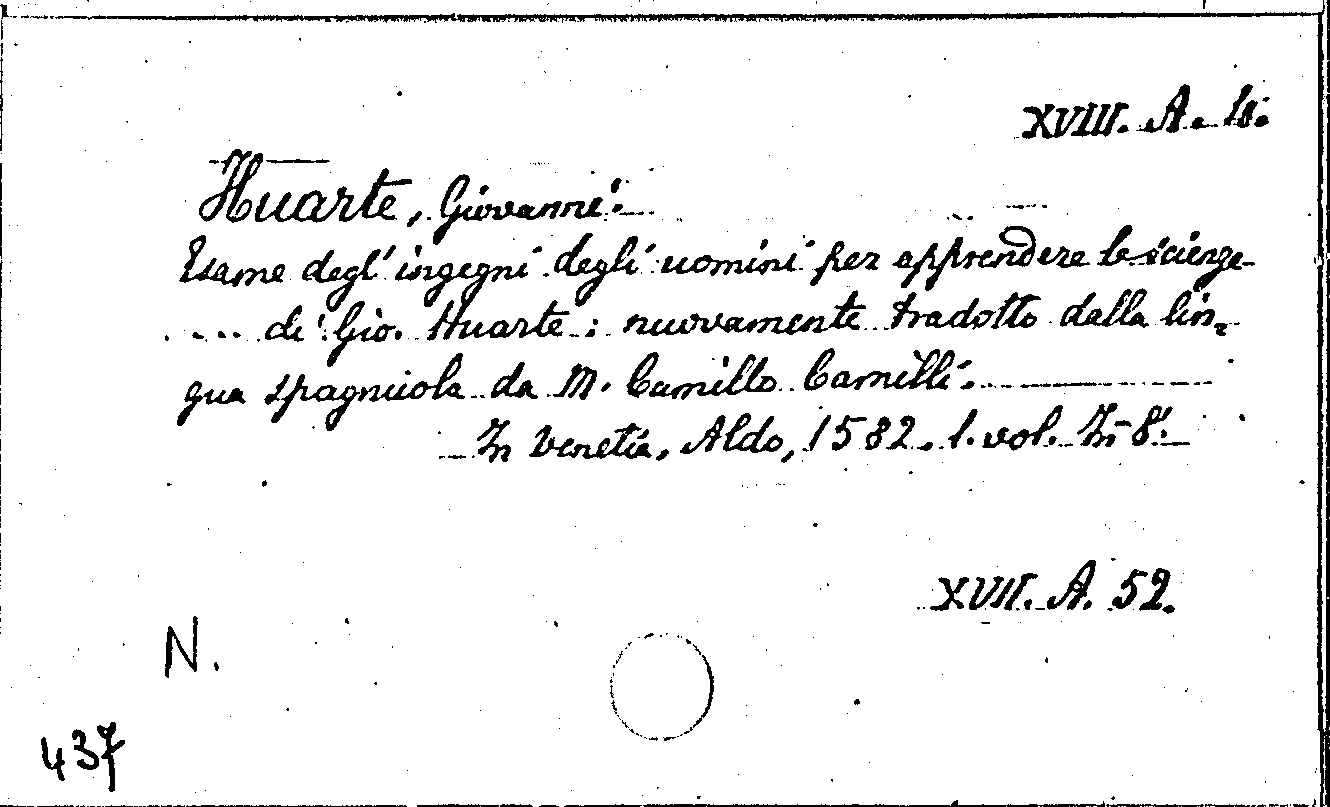 XVIII. A.
Huarte, Giovanni.
Esame degl' ingegni degli uomini per apprendere le scienze
.... di Gio. Huarte: nuovamente tradotto dalla lin-
gua spagnuola da M. Camillo Camilli.
In Venetia, Aldo, 1582. 1. vol. In-8.
XVII. A. 52.
N.
437